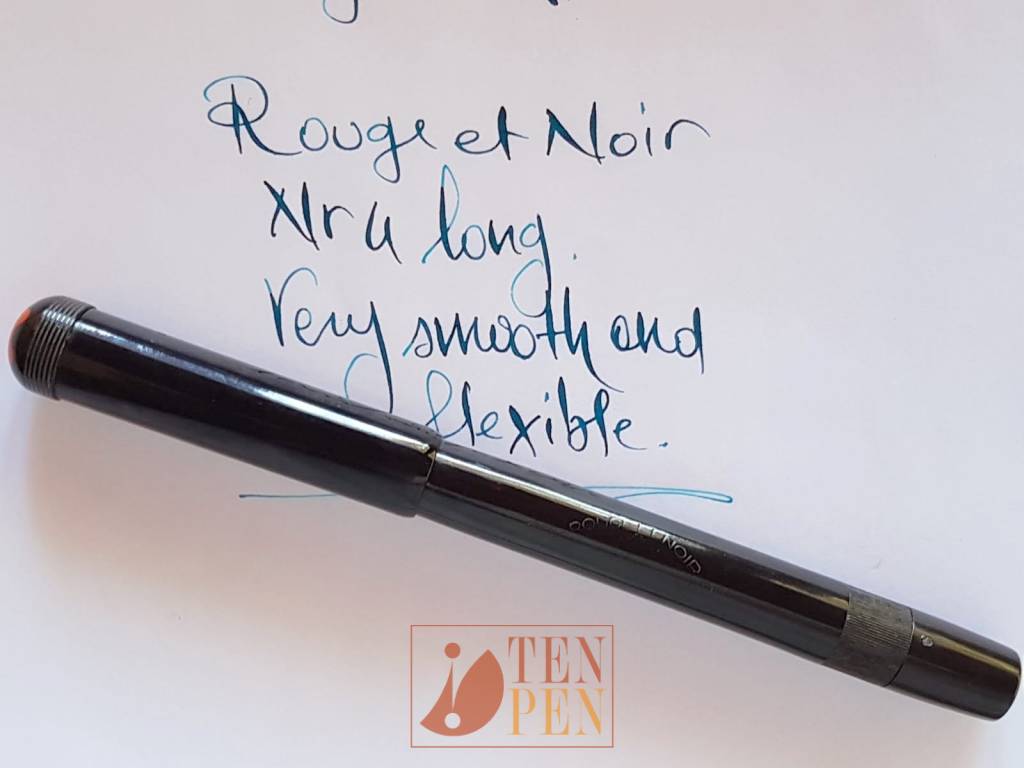 Rouge et Noir
Nr 4 long.
Very smooth and
flexible.
ROUGE ET NOIR
TEN
PEN